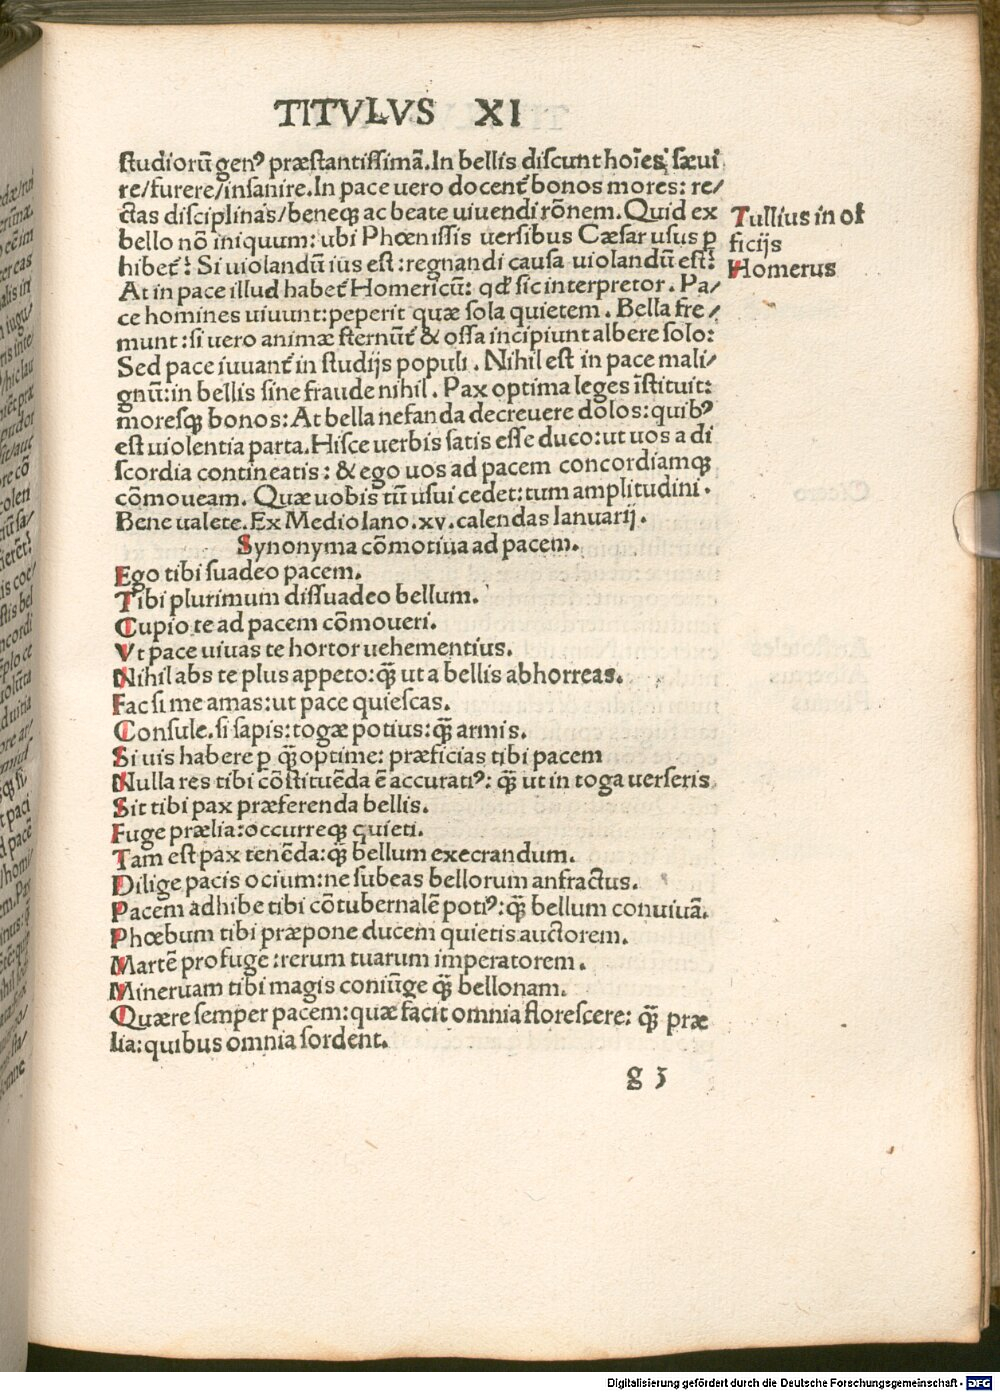 TITVLVS XI
ſtudiorū genꝰ præſtantiſſimā. In bellis diſcunt hoīes ſæui
re/furere/inſanire. In pace uero docent᷑ bonos mores: re/
ctas diſciplinas/beneqꝫ ac beate uiuendi rōnem. Quid ex
bello nō iniquum: ubi Phœniſſis uerſibus Cæſar uſus ꝑ
hibet᷑: Si uiolandū ius eſt: regnandi cauſa uiolandū eſt:
At in pace illud habet᷑ Homericū: qđ ſic interpretor. Pa/
ce homines uiuunt: peperit quæ ſola quietem. Bella fre/
munt: ſi uero animæ ſternūt᷑ & oſſa incipiunt albere ſolo:
Sed pace iuuant᷑ in ſtudijs populi. Nihil eſt in pace mali/
gnū: in bellis ſine fraude nihil. Pax optima leges īſtituit:
moreſqꝫ bonos: At bella nefanda decreuere dolos: quibꝰ
eſt uiolentia parta. Hiſce uerbis ſatis eſſe duco: ut uos a di
ſcordia contineatis: & ego uos ad pacem concordiamqꝫ
cōmoueam. Quæ uobis tū uſui cedet: tum amplitudini.
Bene ualete. Ex Mediolano. xv. calendas Ianuarij.
Synonyma cōmotiua ad pacem.
Ego tibi ſuadeo pacem.
Tibi plurimum diſſuadeo bellum.
Cupio te ad pacem cōmoueri.
Vt pace uiuas te hortor uehementius.
Nihil abs te plus appeto: qꝫ̄ ut a bellis abhorreas.
Fac ſi me amas: ut pace quieſcas.
Conſule. ſi ſapis: togæ potius: qꝫ̄ armis.
Si uis habere ꝑ qꝫ̄ optime: præficias tibi pacem
Nulla res tibi cōſtituēda ē accuratiꝰ: qꝫ̄ ut in toga uerſeris
Sit tibi pax præferenda bellis.
Fuge prælia: occurreqꝫ quieti.
Tam eſt pax tenēda: qꝫ̄ bellum execrandum.
Dilige pacis ocium: ne ſubeas bellorum anfractus.
Pacem adhibe tibi cōtubernalē potiꝰ: qꝫ̄ bellum conuiuā.
Phœbum tibi præpone ducem quietis auctorem.
Martē profuge: rerum tuarum imperatorem.
Mineruam tibi magis coniūge qꝫ̄ bellonam.
Quære ſemper pacem: quæ facit omnia floreſcere: qꝫ̄ præ
lia: quibus omnia ſordent.
g 3
Tullius in of
ficijs
Homerus
Digitalisierung gefördert durch die Deutsche Forschungsgemeinschaft - DFG